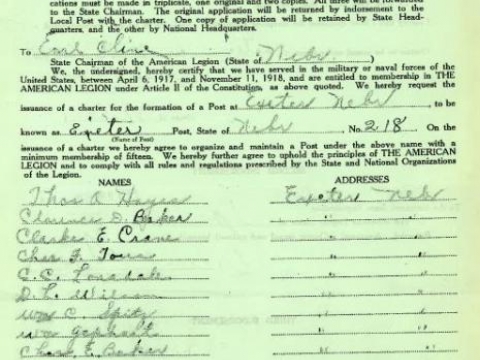 cations must be made in triplicate, one original and two copies. All three will be forwarded
to the State Chairman. The original application will be returned by indorsement to the
Local Post with charter. One copy of application will be retained by State Head-
quarters, and the other by National Headquarters.
To Earl Cline
State Chairman of the American Legion (State of Nebr)
We, the undersigned, hereby certify that we have served in the military or naval forces of the
United States, between April 6, 1917, and November 11, 1918, and are entitled to membership in THE
AMERICAN LEGION under Article II of the Constitution, as above quoted. We hereby request
issuance of a charter for the formation of a Post at Exeter Nebr, to be
known as Exeter Post, State of Nebr No. 218. On the
(Name of Post)
issuance of a charter we hereby agree to organize and maintain a Post under the above name with a
minimum membership of fifteen. We hereby further agree to uphold the principles of THE AMERICAN
LEGION and to comply with all rules and regulations prescribed by the State and National Organizations
of the Legion.
NAMES ADDRESSES
Thos A Hayes Exeter Nebr
Clarence D. Baker " "
Clarke E. Crane " "
Chas F. " "
C. C. Lonsdale " "
D. L. Wilson " "
Wm C. Spitz " "
Wm Gephart " "
Chas. E. Baker " "